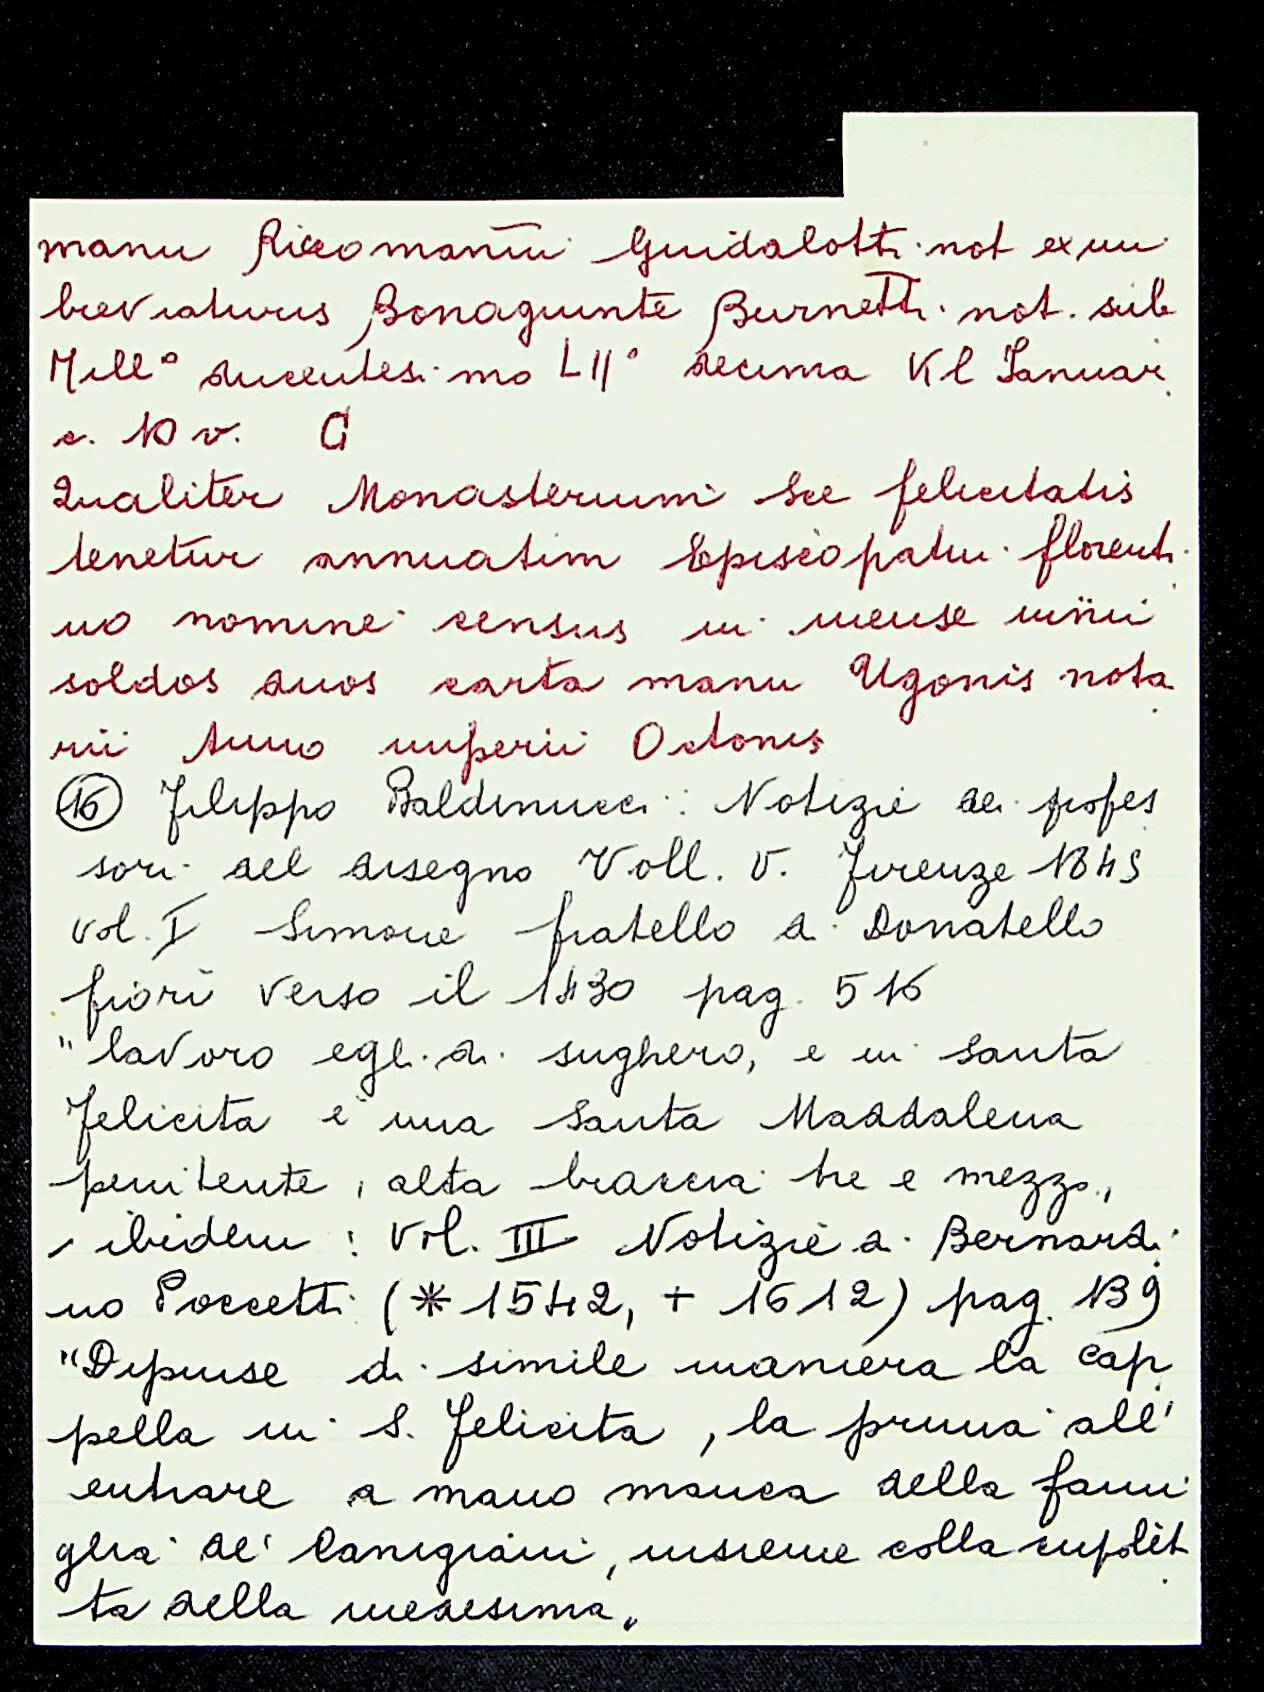 manu Riccomanni Guidalotti not ex im
breviaturis Bonagiunte Burnetti not. sub
Mill° ducentesimo LII° decima Kl Januar
c. 10 v. C
Qualiter Monasterium Sce felicitatis
tenetur annuatim Episcopatui florenti
no nomine census in mense
soldos duos carta manu Ugonis nota
rii Anno imperii Octonis
16 Filippo Baldinucci: Notizie dei profes
sori del disegno Voll. V. Firenze 1845
vol. I Simone fratello di Donatello
fiorì verso il 1430 pag. 516
"lavorò egli di sughero, e in Santa
Felicita è una Santa Maddalena
penitente, alta braccia tre e mezzo„
, ibidem: Vol. III Notizie di Bernardi
no Poccetti (* 1542, + 1612) pag. 139
"Dipinse di simile maniera la cap
pella in S. Felicita, la prima all'
entrare a mano manca della fami
glia de' Canigiani, insieme colla cupolet
ta della medesima„